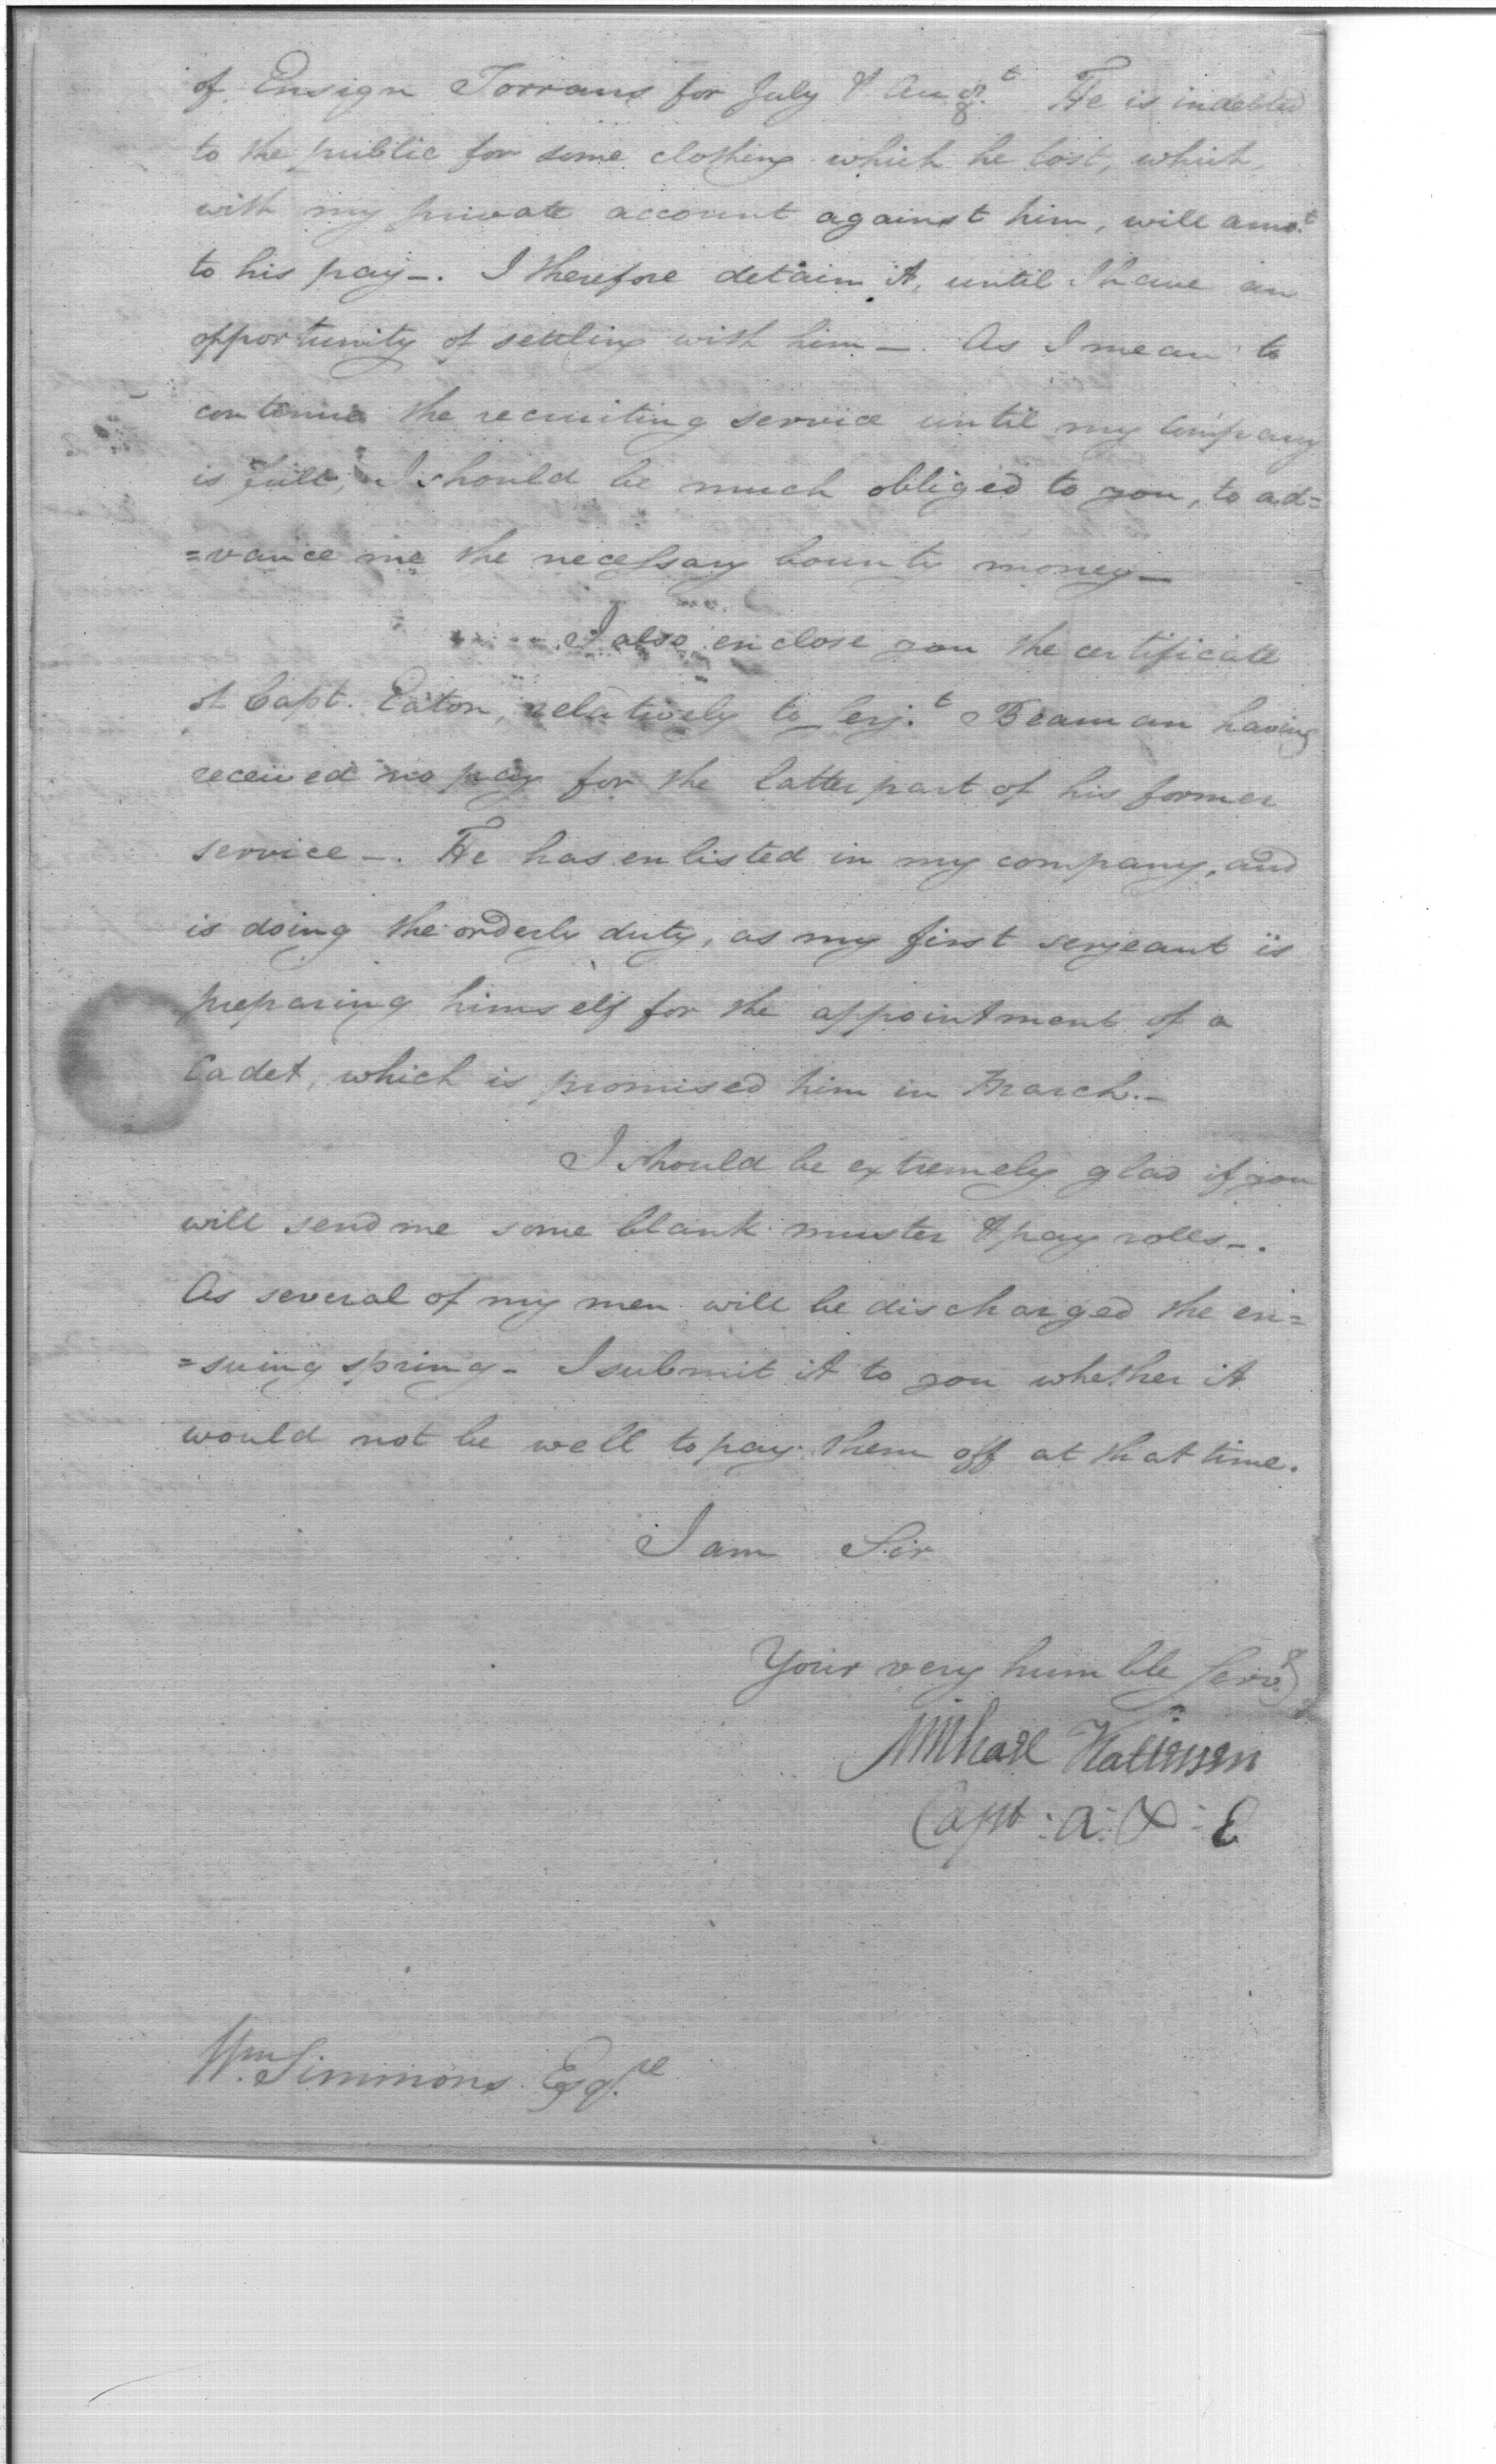 of Ensign Torrans for July & Augt. He is indebted
to the public for some clothing which he lost, which,
with my private account against him, will amot.
to his pay—. I therefore detain it, until I have an
opportunity of settling with him—. As I mean to
continue the recruiting service until my company
is full, I should be much obliged to you, to ad=
=vance me the necessary bounty money—
I also enclose you the certificate
of Capt. Eaton, relatively to serj.t Beaman having
received no pay for the latter part of his former
service—. He has enlisted in my company, and
is doing the orderly duty, as my first serjeant is
preparing himself for the appointment of a
Cadet, which is promised him in March.—
I should be extremely glad if you
will send me some blank muster & pay rolls—.
As several of my men will be discharged the en=
=suing spring— I submit it to you whether it
would not be well to pay them off at that time.
I am Sir
Your very humble servt.
Michael Kalteisen
Capt: A: & E
Wm. Simmons Esq.re